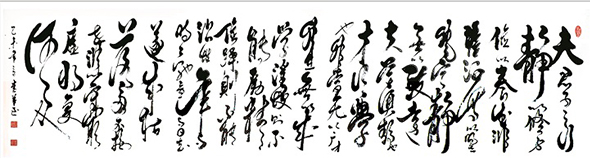 夫君子之行
静以修身
俭以养德非
澹泊无以明
志非宁静
无以致远
夫学须静也
才须学
也非学无以广才
非志无以成
学淫慢则不
能励精
险躁则不能
治性年与
时驰意与日去
遂成枯
落多不接
世悲守穷
庐将复
何及